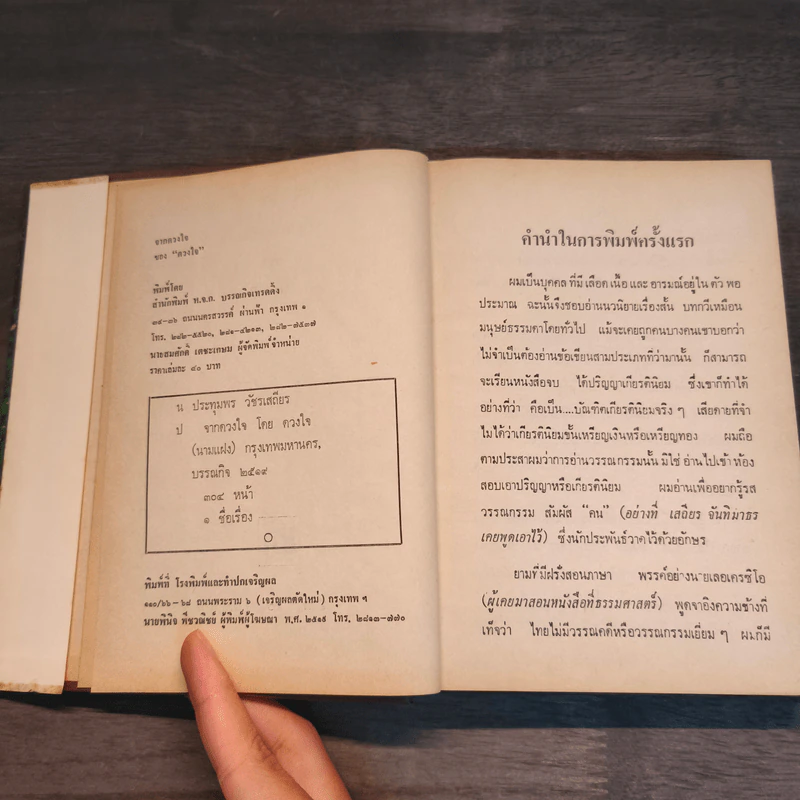 จากดวงใจ
ของ "ดวงใจ"
พิมพ์โดย
สำนักพิมพ์ ห.จ.ก. บรรณกิจเทรดดิ้ง
๓๔-๓๖ ถนนนครสวรรค์ ผ่านฟ้า กรุงเทพ ๑
โทร. ๒๘๒-๕๕๒๐, ๒๘๑-๔๒๑๓, ๒๘๒-๗๕๓๗
นายสมศักดิ์ เตชะเกษม ผู้จัดพิมพ์จำหน่าย
ราคาเล่มละ ๔๐ บาท
น ประทุมพร วัชรเสถียร
ป จากดวงใจ โดย ดวงใจ
(นามแฝง) กรุงเทพมหานคร,
บรรณกิจ ๒๕๑๙
๓๐๔ หน้า
๑ ชื่อเรื่อง
พิมพ์ที่ โรงพิมพ์และทำปกเจริญผล
๑๑๐/๖๖-๖๘ ถนนพระราม ๖ (เจริญผลตัดใหม่) กรุงเทพ ฯ
นายพินิจ พืชวณิชย์ ผู้พิมพ์ผู้โฆษณา พ.ศ. ๒๕๑๙ โทร. ๒๘๑๓-๗๗๐
คำนำในการพิมพ์ครั้งแรก
ผมเป็นบุคคล ที่มี เลือด เนื้อ และ อารมณ์อยู่ใน ตัว พอ
ประมาณ ฉะนั้นจึงชอบอ่านนวนิยายเรื่องสั้น บทกวีเหมือน
มนุษย์ธรรมดาโดยทั่วไป แม้จะเคยถูกคนบางคนเขาบอกว่า
ไม่จำเป็นต้องอ่านข้อเขียนสามประเภทที่ว่ามานั้น ก็สามารถ
จะเรียนหนังสือจบ ได้ปริญญาเกียรตินิยม ซึ่งเขาก็ทำได้
อย่างที่ว่า คือเป็น....บัณฑิตเกียรตินิยมจริง ๆ เสียดายที่จำ
ไม่ได้ว่าเกียรตินิยมชั้นเหรียญเงินหรือเหรียญทอง ผมถือ
ตามประสาผมว่าการอ่านวรรณกรรมนั้น มิใช่ อ่านไปเข้า ห้อง
สอบเอาปริญญาหรือเกียรตินิยม ผมอ่านเพื่ออยากรู้รส
วรรณกรรม สัมผัส "คน" (อย่างที่ เสถียร จันทิมาธร
เคยพูดเอาไว้) ซึ่งนักประพันธ์วาดไว้ด้วยอักษร
ยามที่มีฝรั่งสอนภาษา พรรค์อย่างนายเลอเครซิโอ
(ผู้เคยมาสอนหนังสือที่ธรรมศาสตร์) พูดจาอิงความข้างที่
เท็จว่า ไทยไม่มีวรรณคดีหรือวรรณกรรมเยี่ยม ๆ ผมก็มี